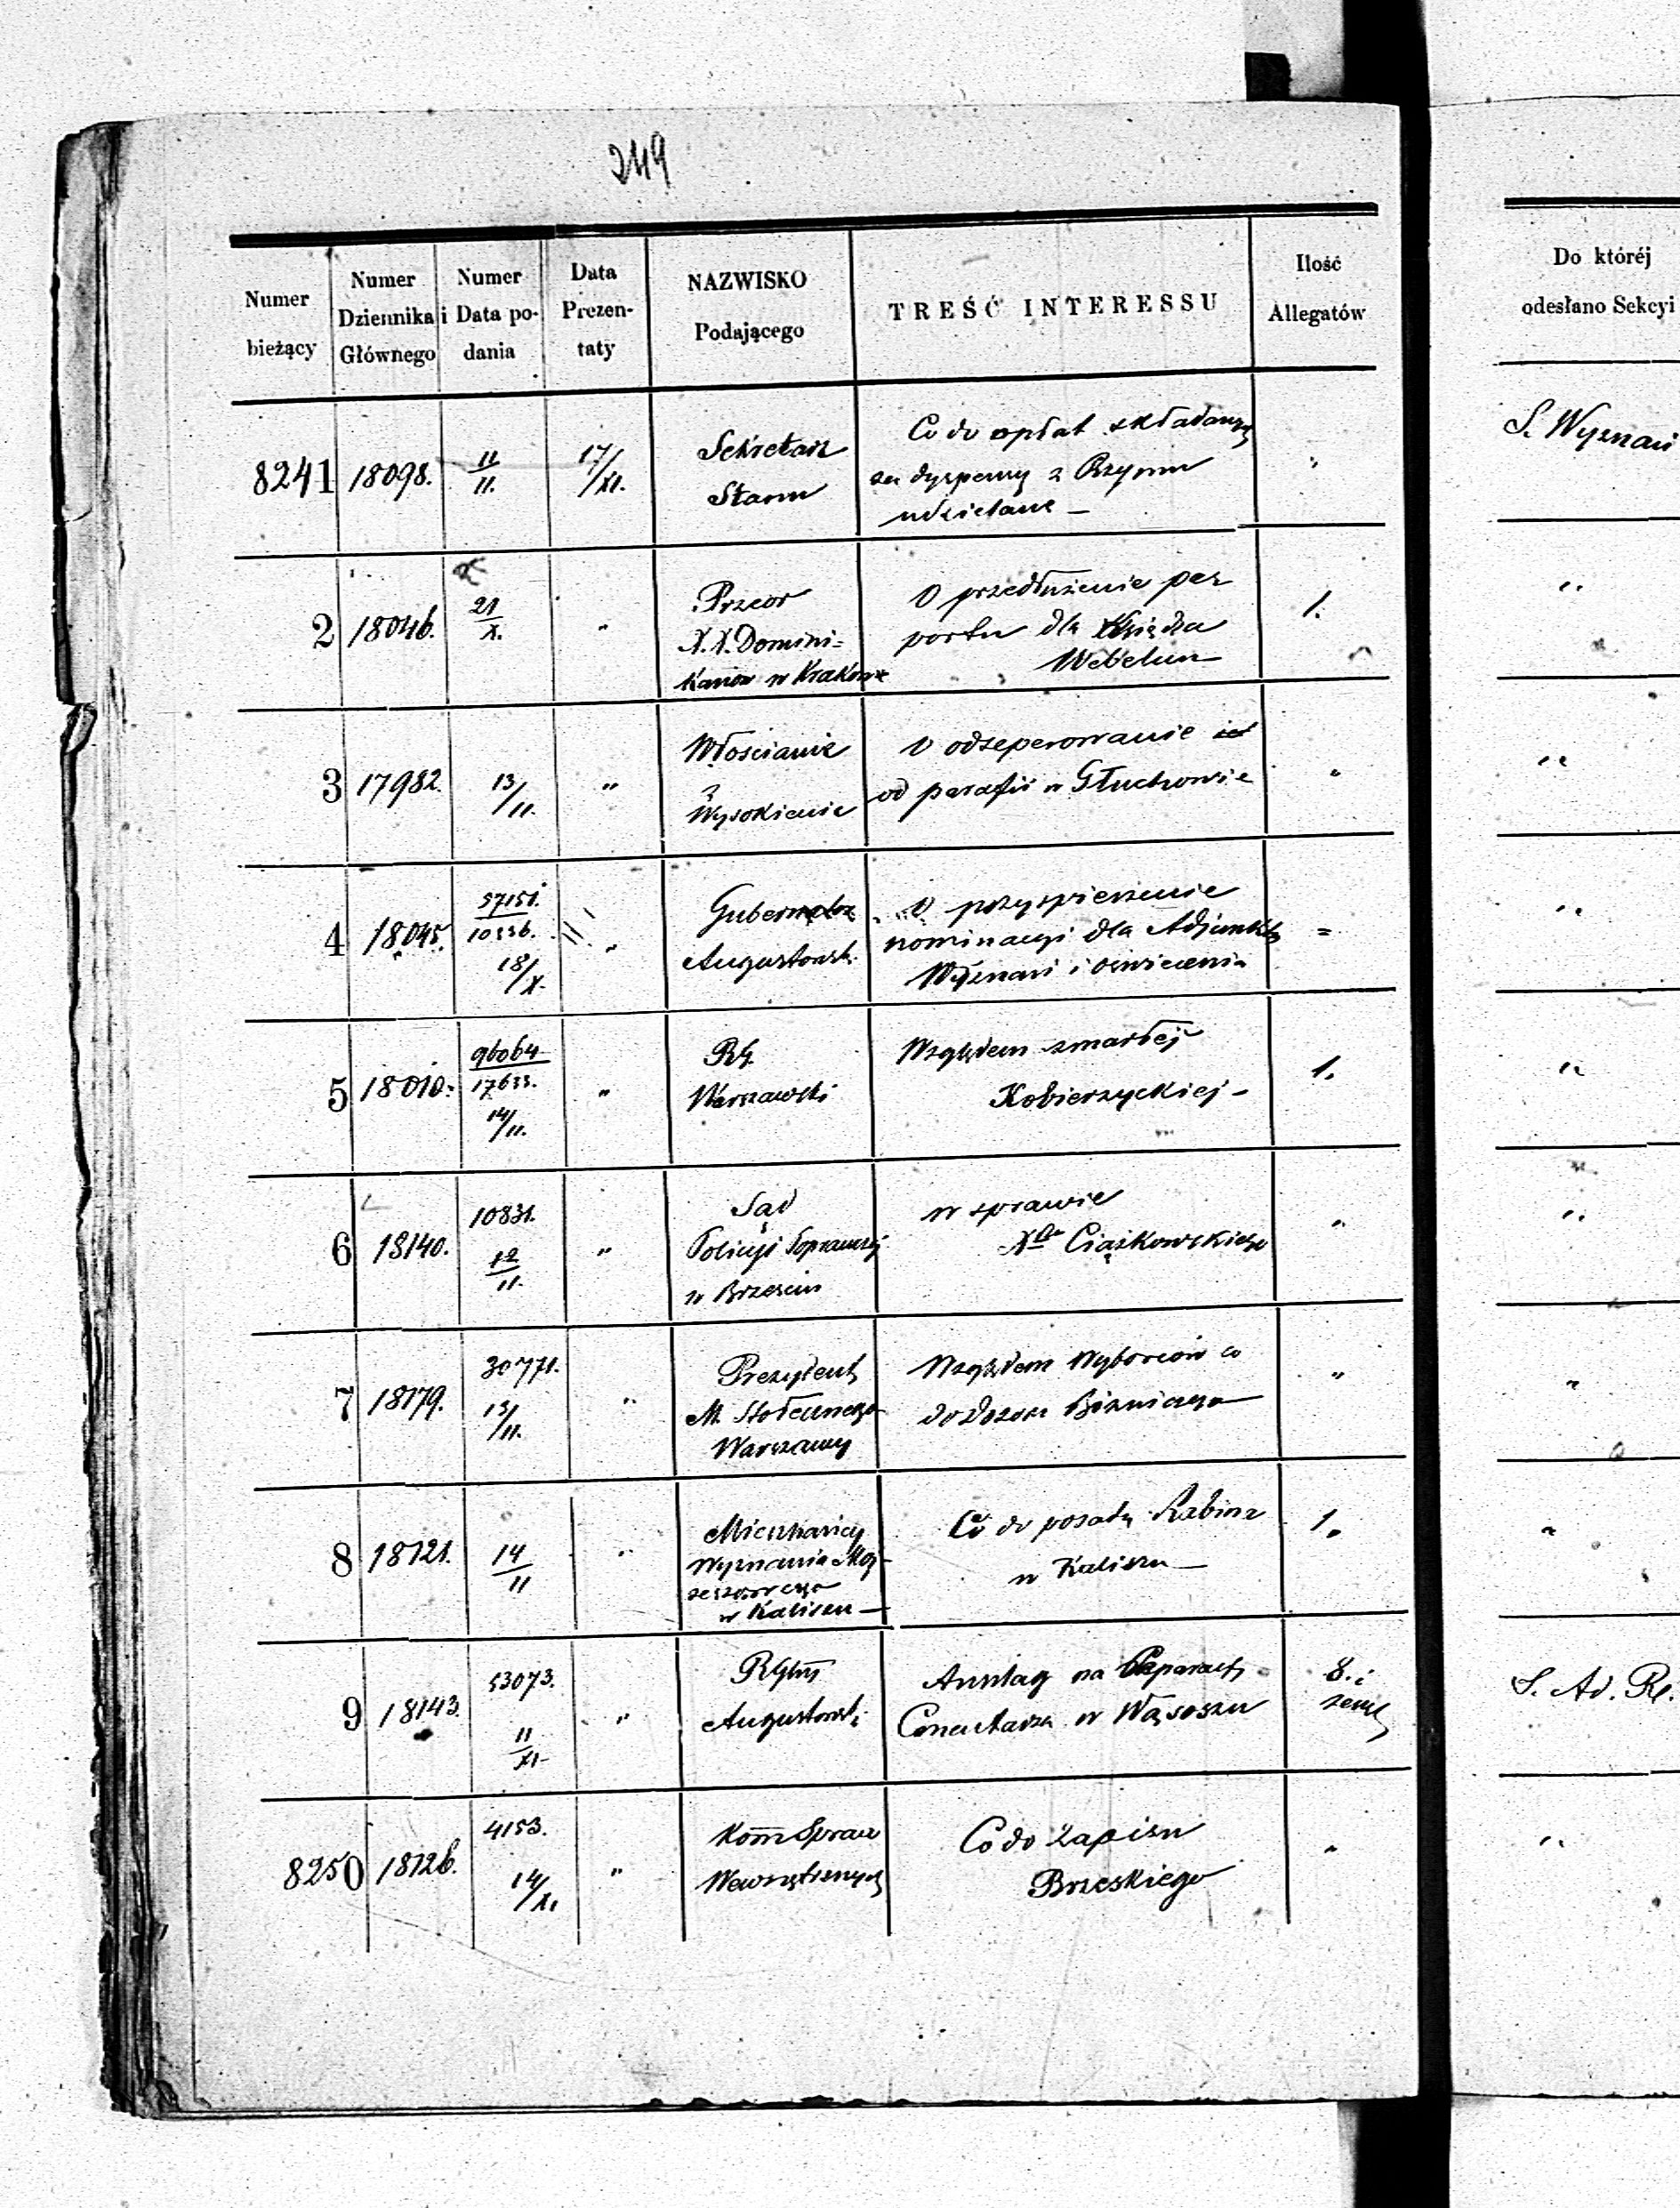 249
Numer bieżący
Numer Dziennika Głównego
Numer i Data podania
Data Prezentaty
NAZWISKO Podającego
TREŚĆ INTERESSU
Ilość Allegatów
Do któréj odesłano Sekcyi
8241
18098.
11/11.
17/XI.
Sekretarz
Stanu
Co do opłat składanych
za dyspensy z Rzymu
udzielane –
"
S. Wyznań
2
18046.
21/X.
"
Przeor
X.X. Domini-
kanów w Krakowie
O przedłużenie pasz
portu dla Księdza
1.
"
3
17982.
13/11.
"
Włościanie
z
Wysokienic
O odseperowanie ich
od parafii w Głuchowie
"
"
4
18045.
57151.
10336.
18/X.
"
Gubernator
Augustowski
O przyspieszenie
nominacyi dla Adjunkta
Wyznań i oświecenia
=
"
5
18010.
96064
17633.
14/11.
"
RG.
Warszawski
Względem zmarłej
Kobierzyckiej –
1.
"
6
18140.
10831.
12/11.
"
Sąd
Policyi Poprawczej
w Brześciu
w sprawie
Xdza Ciążkowskiego
"
"
7
18179.
30771.
13/11.
"
Prezydent
M. Stołecznego
Warszawy
Względem Wyborców co
do Dozoru Bożniczego
"
"
8
18121.
14/11
"
Mieszkańcy
Wyznania Moj-
żeszowego
w Kaliszu –
Co do posady Rabina
w Kaliszu –
1.
"
9
18143.
53073.
11/XI–
"
RGlny
Augustowski
Anszlag na Reparacyą
Cmentarza w Wąsoszu
8. i
S. Ad. Rl.
8250
18126.
4153.
14/XI
"
Kom Spraw
Wewnętrznych
Co do Zapisu
Brzeskiego
"
"